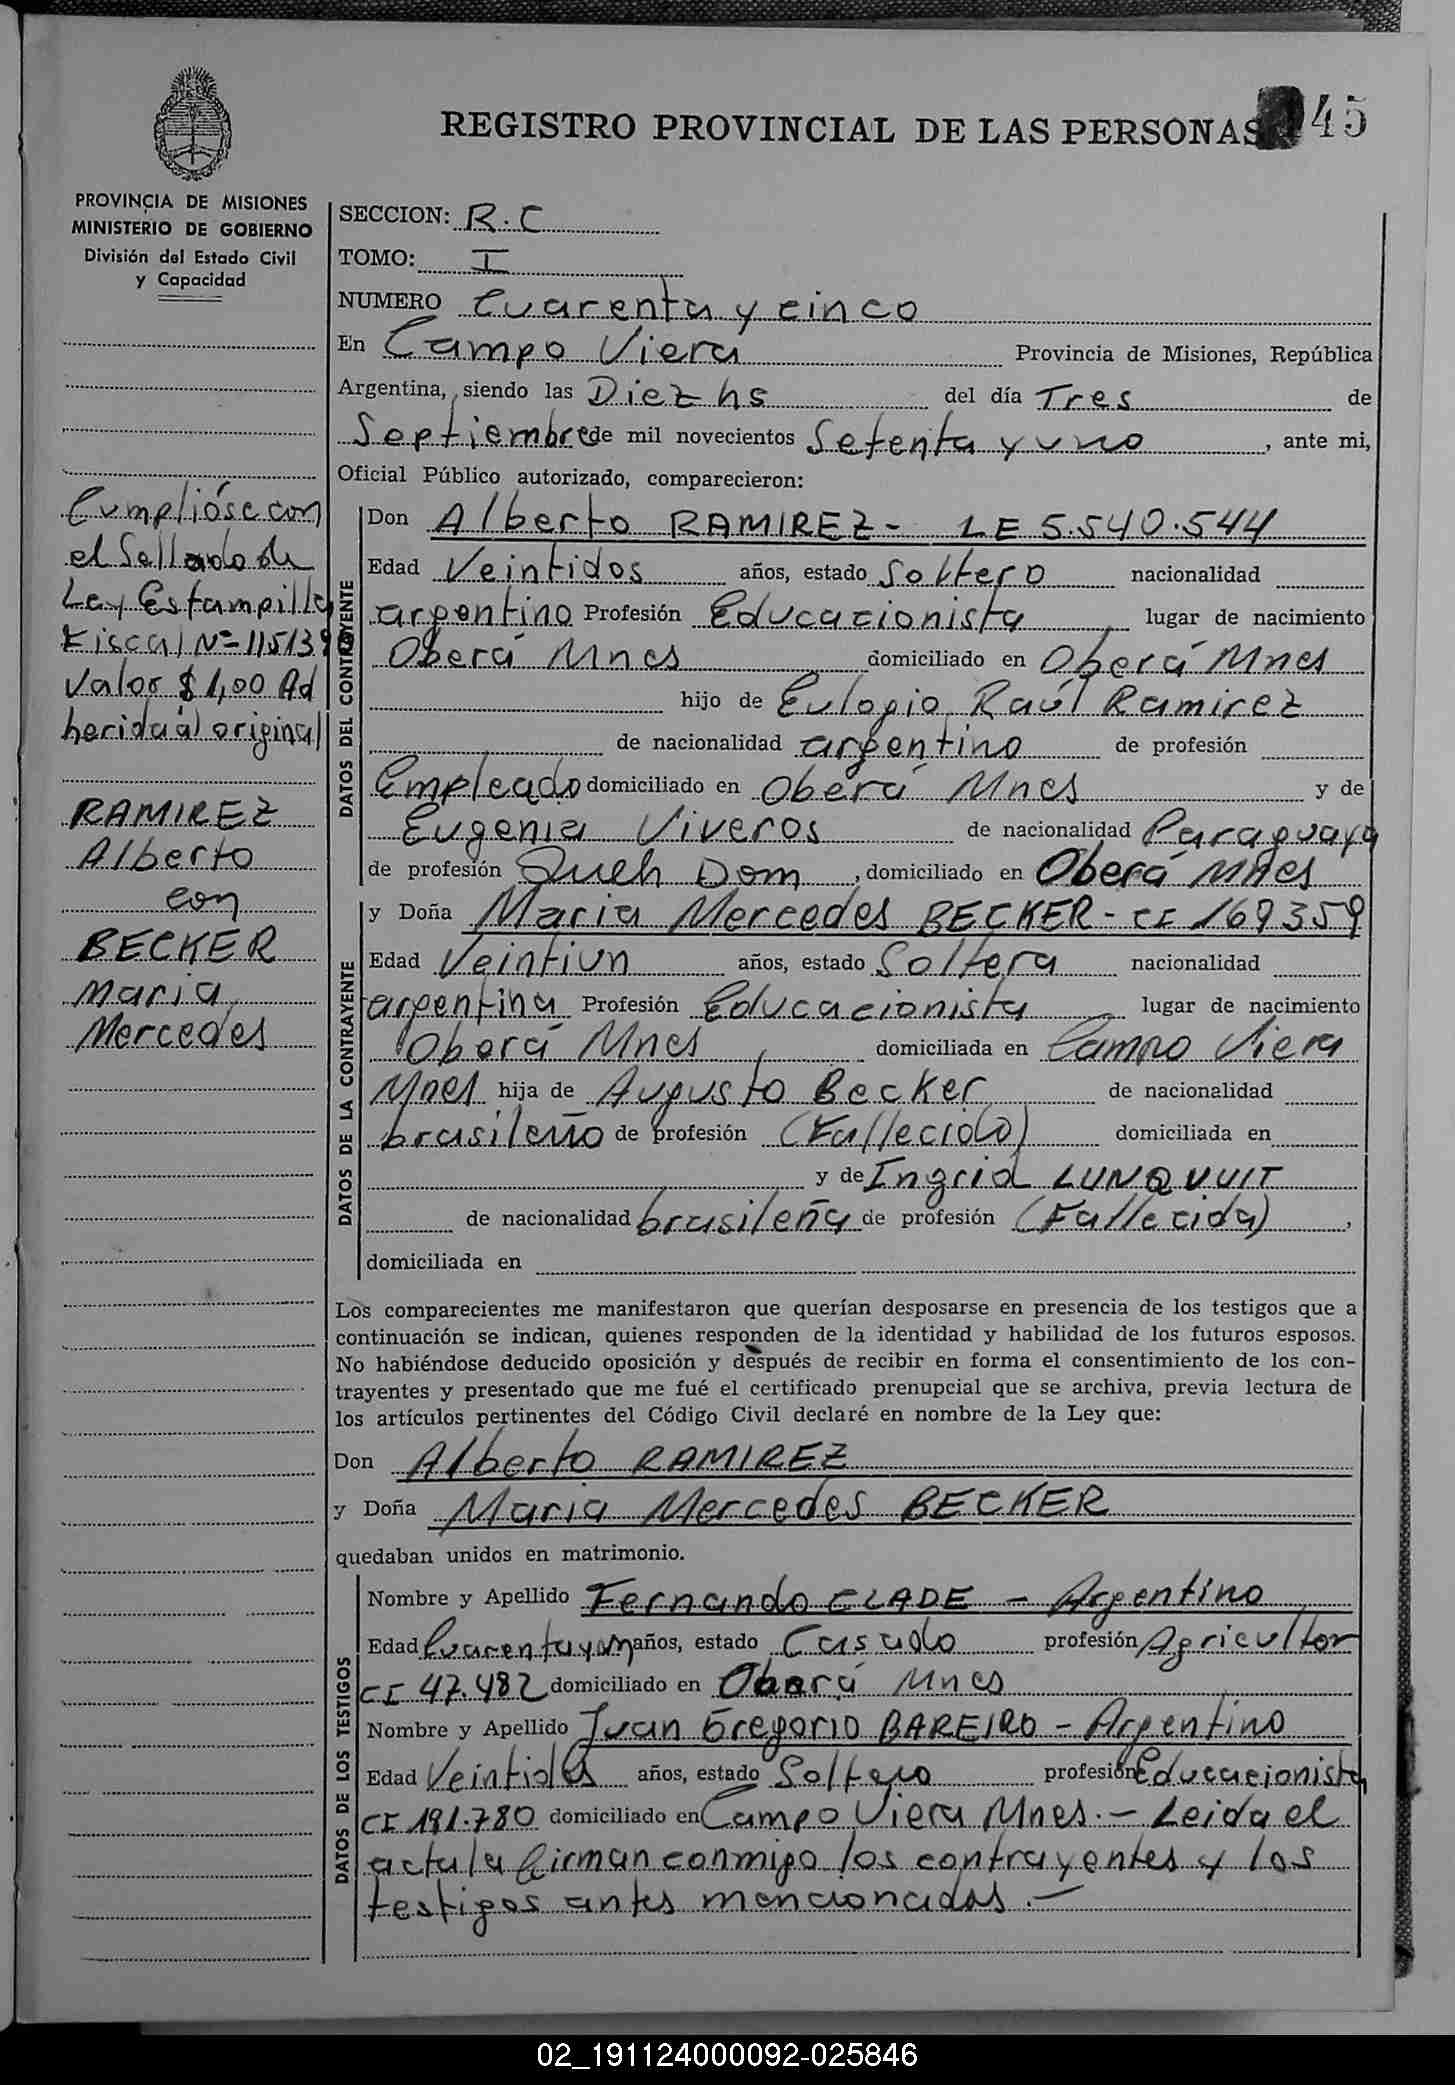 REGISTRO PROVINCIAL DE LAS PERSONAS 45
PROVINCIA DE MISIONES
MINISTERIO DE GOBIERNO
División del Estado Civil
y Capacidad
Cumplióse con
el Sellado de
Ley Estampilla
Fiscal Nº
Valor $ 1,00 Ad
herida al original
RAMIREZ
Alberto
con
BECKER
Maria
Mercedes
SECCION: R.C
TOMO: I
NUMERO Cuarenta y cinco
En Campo Viera Provincia de Misiones, República
Argentina, siendo las Diez hs del día Tres de
Septiembre de mil novecientos Setenta y uno, ante mi,
Oficial Público autorizado, comparecieron:
DATOS DEL CONTRAYENTE
Don Alberto RAMIREZ- LE 5.540.544
Edad Veintidos años, estado Soltero nacionalidad
argentino Profesión Educacionista lugar de nacimiento
Oberá Mnes domiciliado en Oberá Mnes
hijo de Eulogio Raúl Ramirez
de nacionalidad argentino de profesión
Empleado domiciliado en Oberá Mnes y de
Eugenia Viveros de nacionalidad Paraguaya
de profesión Queh Dom, domiciliado en Oberá Mnes
DATOS DE LA CONTRAYENTE
y Doña Maria Mercedes BECKER- CI 169359
Edad Veintiun años, estado Soltera nacionalidad
argentina Profesión Educacionista lugar de nacimiento
Oberá Mnes domiciliada en Campo Viera
Mnes hija de Augusto Becker de nacionalidad
brasileño de profesión (Fallecido) domiciliada en
y de Ingrid LUNQVUIT
de nacionalidad brasileña de profesión (Fallecida),
domiciliada en
Los comparecientes me manifestaron que querían desposarse en presencia de los testigos que a
continuación se indican, quienes responden de la identidad y habilidad de los futuros esposos.
No habiéndose deducido oposición y después de recibir en forma el consentimiento de los con-
trayentes y presentado que me fué el certificado prenupcial que se archiva, previa lectura de
los artículos pertinentes del Código Civil declaré en nombre de la Ley que:
Don Alberto RAMIREZ
y Doña Maria Mercedes BECKER
quedaban unidos en matrimonio.
DATOS DE LOS TESTIGOS
Nombre y Apellido Fernando CLADE - Argentino
Edad Cuarenta y años, estado Casado profesión Agricultor
CI 47.482 domiciliado en Oberá Mnes
Nombre y Apellido Juan Gregorio BAREIRO - Argentino
Edad Veintidos años, estado Soltero profesión Educacionista
CI 191.780 domiciliado en Campo Viera Mnes.- Leida el
acta la firman conmigo los contrayentes y los
testigos antes mencionados.-
02_191124000092-025846